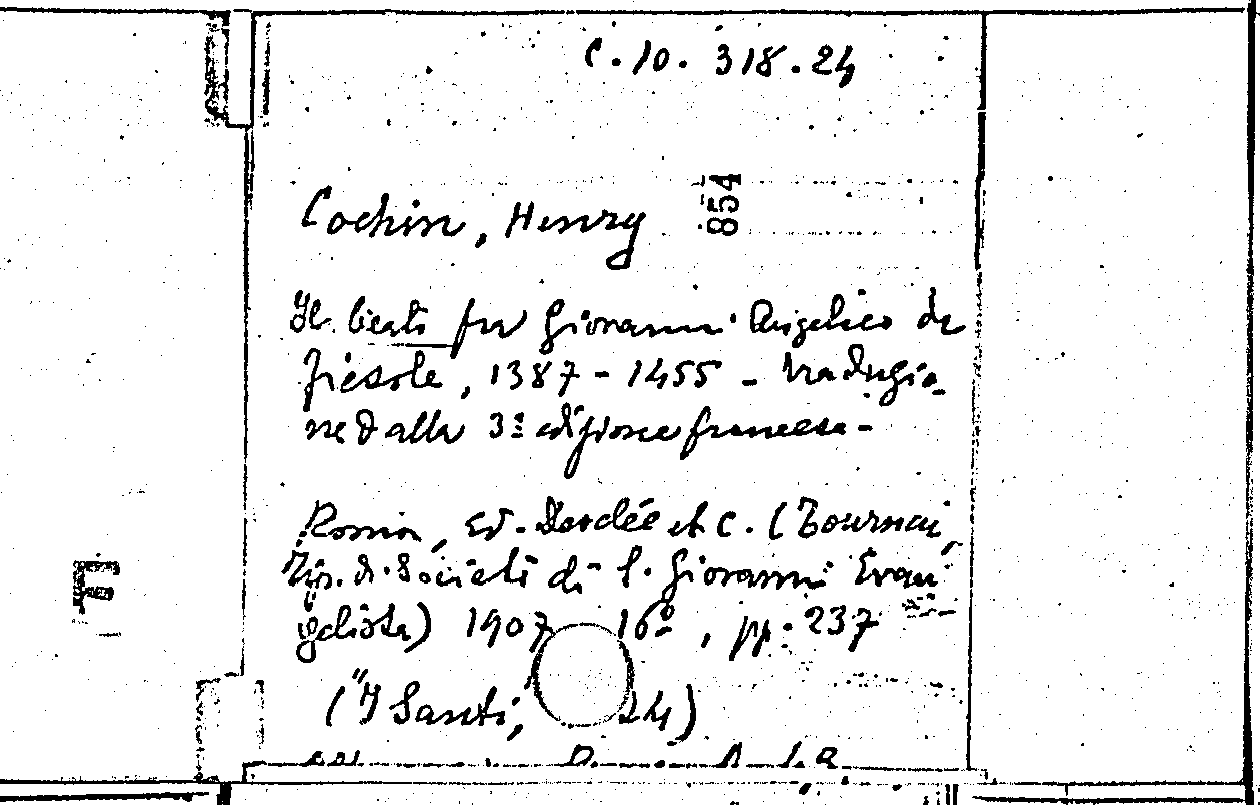 C.10.318.24
854
Cochin, Henry
Il beato fra Giovanni Angelico da
Fiesole, 1387-1455 - traduzio-
ne dalla 3ª edizione francese -
Roma, ed. Desclée et C. (Tournai,
Tip. di Società di S. Giovanni Evan
gelista) 1907 16º, pp. 237
("I Santi, 24)
F